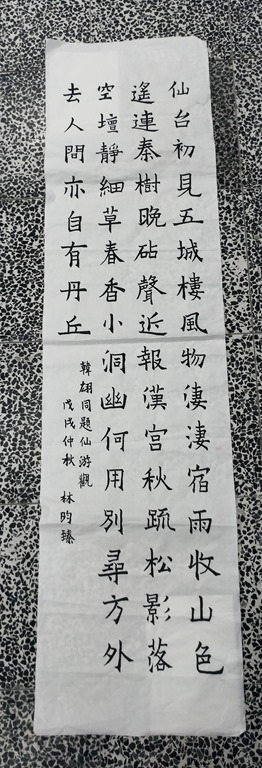 仙台初見五城樓風物淒淒宿雨收山色
遙連秦樹晚砧聲近報漢宫秋疏松影落
空壇靜細草春香小洞幽何用別尋方外
去人間亦自有丹丘
韓翃同題仙游觀
戊戌仲秋 林昀臻